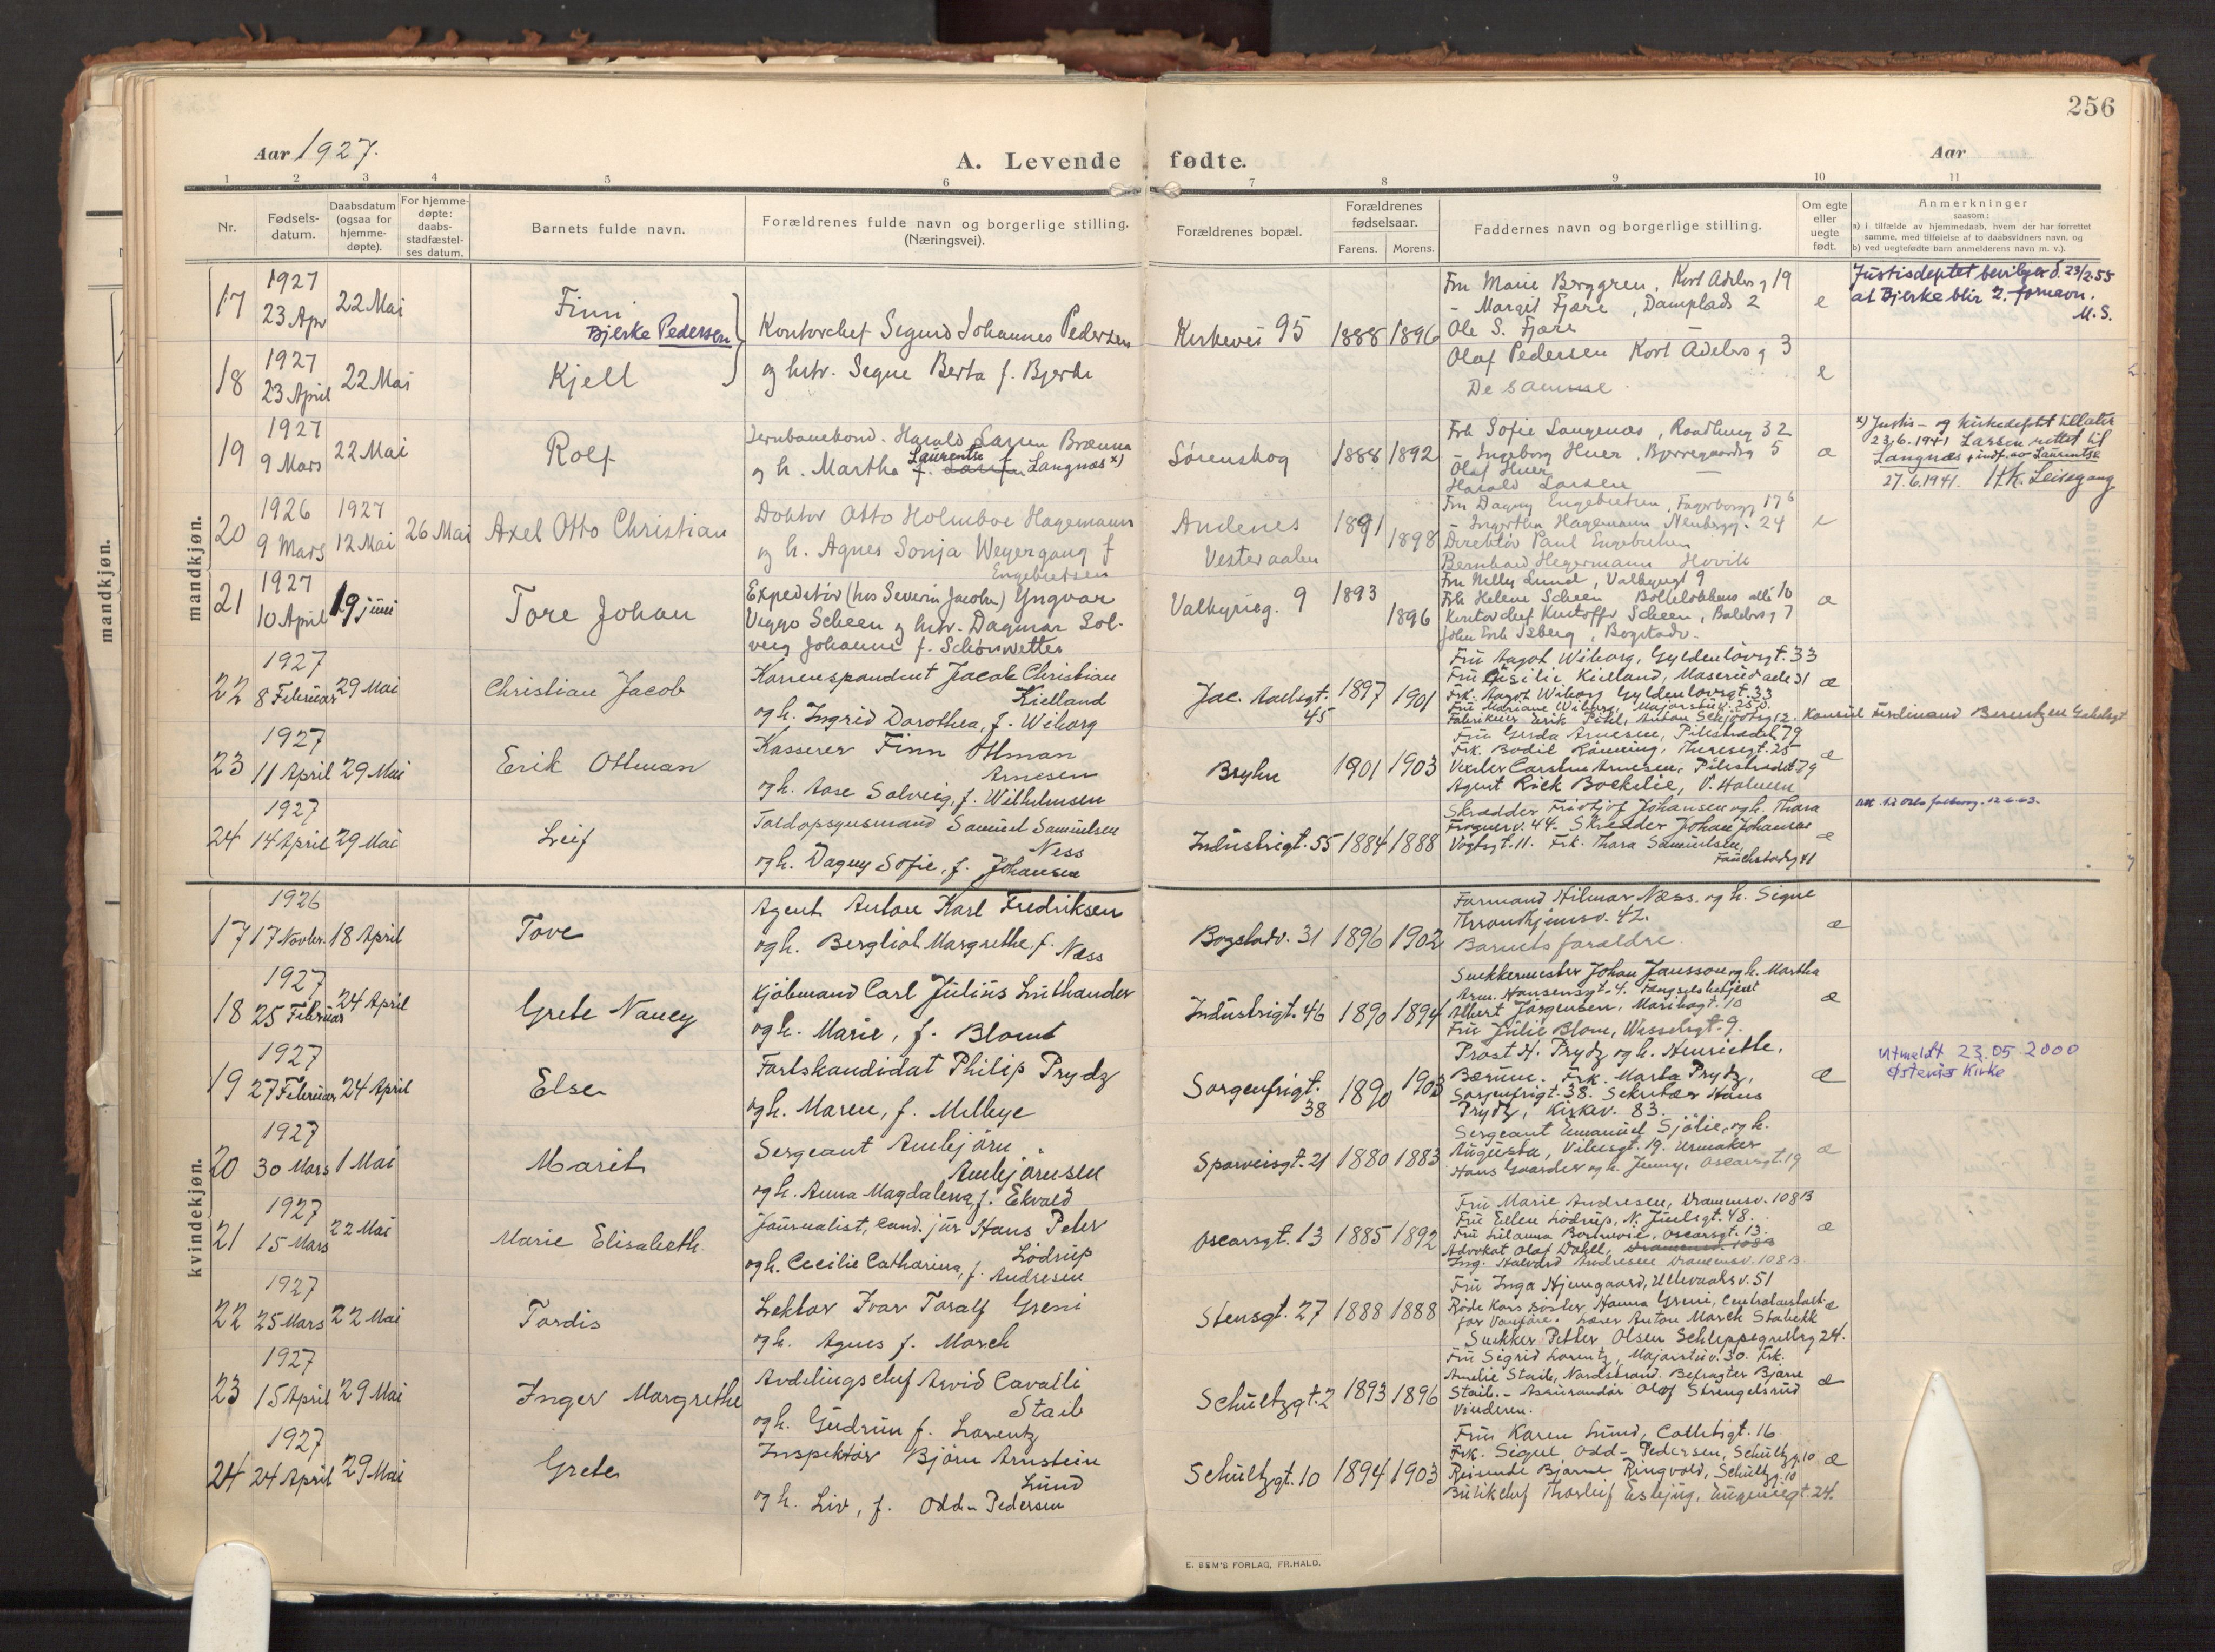 256
Aar 1927.
A. Levende fødte.
Aar
1 2 3 4 5 6 7 8 9 10 11
Nr.
Fødsels-
datum.
Daabsdatum
(ogsaa for
hjemme-
døpte).
For hjemme-
døpte:
daabs-
stadfæstel-
ses datum.
Barnets fulde navn.
Forældrenes fulde navn og borgerlige stilling.
(Næringsvei).
Forældrenes bopæl.
Forældrenes
fødselsaar.
Farens. Morens.
Faddernes navn og borgerlige stilling.
Om egte
eller
uegte
født.
Anmerkninger
saasom:
a) i tilfælde av hjemmedaab, hvem der har forrettet
samme, med tilføielse af to daabsvidners navn, og
b) ved uegtefødte barn anmelderens navn m. v.).
mandkjøn.
mandkjøn.
17
1927
23 Apr
22 Mai
Finn
Bjerke Pedersen
Kontorchef Sigurd Johannes Pedersen
Kirkevei 95
1888 1896
Fru Marie Berggren, Kort Adelersg 19
- Margit Fjære, Damplads 2
Ole S. Fjære
Olaf Pedersen Kort Adelersg 3
e
Justisdeptet beviliger d. 23/2.55
at Bjerke blir 2. fornavn.
M.S.
18
1927
23 April
22 Mai
Kjell
og hstr. Signe Berta f. Bjerke
De samme.
e
19
1927
9 Mars
22 Mai
Rolf
Jernbanekond. Harald Larsen Brænna
og h. Martha Laurentse f. Langnæs x)
Sørenskog
1888 1892
Frk Sofie Langenæs, 32
- Ingeborg Huer, Bjerregaardsg 5
Olaf Huer
Harald Larsen
æ
x) Justis- og kirkedeptet tillater
23.6.1941 Larsen rettet til
Langnæs + indf. av Laurentse
27.6.1941. H.K. Leisegang
20
1926
9 Mars
1927
12 Mai
26 Mai
Axel Otto Christian
Doktor Otto Holmboe Hagemann
og h. Agnes Sonja Weyergang f
Engebretsen
Andenes
Vesteraalen
1891
1898
Fru Dagny Engebretsen, Fagerborgg 17 6
- Ingertha Hagemann, Neubergg. 24
Direktør Paul Engebretsen
Bernhard Hegermann Høvik
e
21
1927
10 April
19 juni
Tore Johan
Expeditør (hos Severin Jacobs) Yngvar
Viggo Scheen og hstr. Dagmar Sol-
veig Johanne f. Schønwetter
Valkyrieg. 9
1893
1896
Fru Nelly Lund, Valkyrigt 9
Frk Helene Scheen Bølleløkkens allé 10
Kontorchef Kristoffer Scheen, Baldersg 7
John Erik Isberg, Bogstadv.
æ
22
1927
8 Februar
29 Mai
Christian Jacob
Korrespondent Jacob Christian
Kielland
og h. Ingrid Dorothea, f. Wiborg
Jac. Aallsgt.
45
1897 1901
Fru Aagot Wiborg, Gyldenløvsgt. 33
Fru Cisilie Kielland, Maserud alle 31
Frk. Aagot Wiborg Gyldenløvsgt. 33
Fru Mariane Wiborg, Majorstuv. 25 D.
Fabrikeier Erik Pihl, Anton Schjødtsg 12. Konsul Ferdinand Berentzen Gabelsgt
æ
23
1927
11 April
29 Mai
Erik Othman
Kasserer Finn Othman
Arnesen
og h. Aase Solveig, f. Wilhelmsen
Bryhn
1901 1903
Fru Gerda Arnesen, Pilestrædet 79
Frk. Bodil Rønning, Theresegt. 25
Veksler Carsten Arnesen, Pilestrædet 79
Agent Rick Bockelie, V. Holmen
æ
24
1927
14 April
29 Mai
Leif
Toldopsynsmand Samuel Samuelsen
Ness
og h. Dagny Sofie, f. Johansen
Industrigt. 55
1884 1888
Skrædder Fridtjof Johansen og h. Thora
Frognerv. 44. Skrædder Johan Johansen
Vogtsgt. 11. Frk. Thora Samuelsen,
Fauchaldsg 41
æ
kvindekjøn.
17
1926
17 Novbr.
18 April
Tove
Agent Anton Karl Fredriksen
og h. Bergliot Margrethe f.
Næss
Bogstadv. 31
1896 1902
Formand Hilmar Næss. og h. Signe
Throndhjemsv. 42.
Barnets forældre.
æ
18
1927
25 Februar
24 April
Grete Nancy
Kjøbmand Carl Julius Luthander
og h. Marie, f. Blomt
Industrigt. 46
1890 1894
Snekkermester Johan Jansson og h. Martha
Arm. Hansensgt. 4. Fængselsbetjent
Albert Jørgensen, Maribogt. 10
Fru Julie Blom, Wesselsgt. 9.
æ
19
1927
27 Februar
24 April
Else
Forstkandidat Philip Prydz
og h. Maren, f. Mellbye
Sorgenfrigt.
38
1890 1903
Prost H. Prydz og h. Henriette,
Bærum. Frk. Marta Prydz,
Sorgenfrigt. 38. Sekretær Hans
Prydz, Kirkev. 83.
æ
Utmeldt 23.05 2000
Østerås Kirke
20
1927
30 Mars
1 Mai
Marit
Sergeant Anbjørn
Anbjørnsen
og h. Anna Magdalena, f. Ekvald
Sporveisgt. 21
1880 1883
Sergeant Emanuel Sjølie, og h.
Augusta, Vibesgt. 19. Urmaker
Hans Gaarder og h. Jenny, Oscarsgt. 19
æ
21
1927
15 Mars
22 Mai
Marie Elisabeth.
Journalist, cand. jur Hans Peter
Lødrup
og h. Cecilie Catharina, f. Andresen
Oscarsgt. 13
1885 1892
Fru Marie Andresen, Dramensv. 108 B
Fru Ellen Lødrup, N. Juelsgt. 48.
Advokat Olaf Dahll, Dramensv. 108 B
Ing. Halvard Andresen Dramensv. 108 B.
æ
22
1927
25 Mars
22 Mai
Tordis
Lektor Ivar Toralf Greni
og h. Agnes f. Morch
Stensgt. 27
1888 1888
Fru Inga Hjemgaard, Ullevaalsv. 51
Røde Kors søster Hanna Greni, Centralanstalt
for Vanføre. Lærer Anton Morch Stabekk
Snekker Petter Olsen Schleppegrellsg 24.
æ
23
1927
15 April
29 Mai
Inger Margrethe
Avdelingschef Arvid Cavalli
Staib
og h. Gudrun f. Lorentz
Schultzgt. 2
1893 1896
Fru Sigrid Lorentz, Majorstuv. 30. Frk.
Amelie Staib, Nordstrand. Befragter Bjarne
Staib. - Assurandør Olaf Strengelsrud
Vinderen.
æ
24
1927
24 April
29 Mai
Grete
Inspektør Bjørn Arnstein
Lund
og h. Liv, f. Odd-Pedersen
Schultzgt. 10
1894 1903
Fru Karen Lund, Collettsgt. 16.
Frk. Signe Odd-Pedersen, Schultzg. 10
Reisende Bjarne Ringvold, Schultzg. 10
Butikchef Thorleif Esbjug, Eugeniegt. 24.
æ
E. SEM'S FORLAG, FR.HALD.